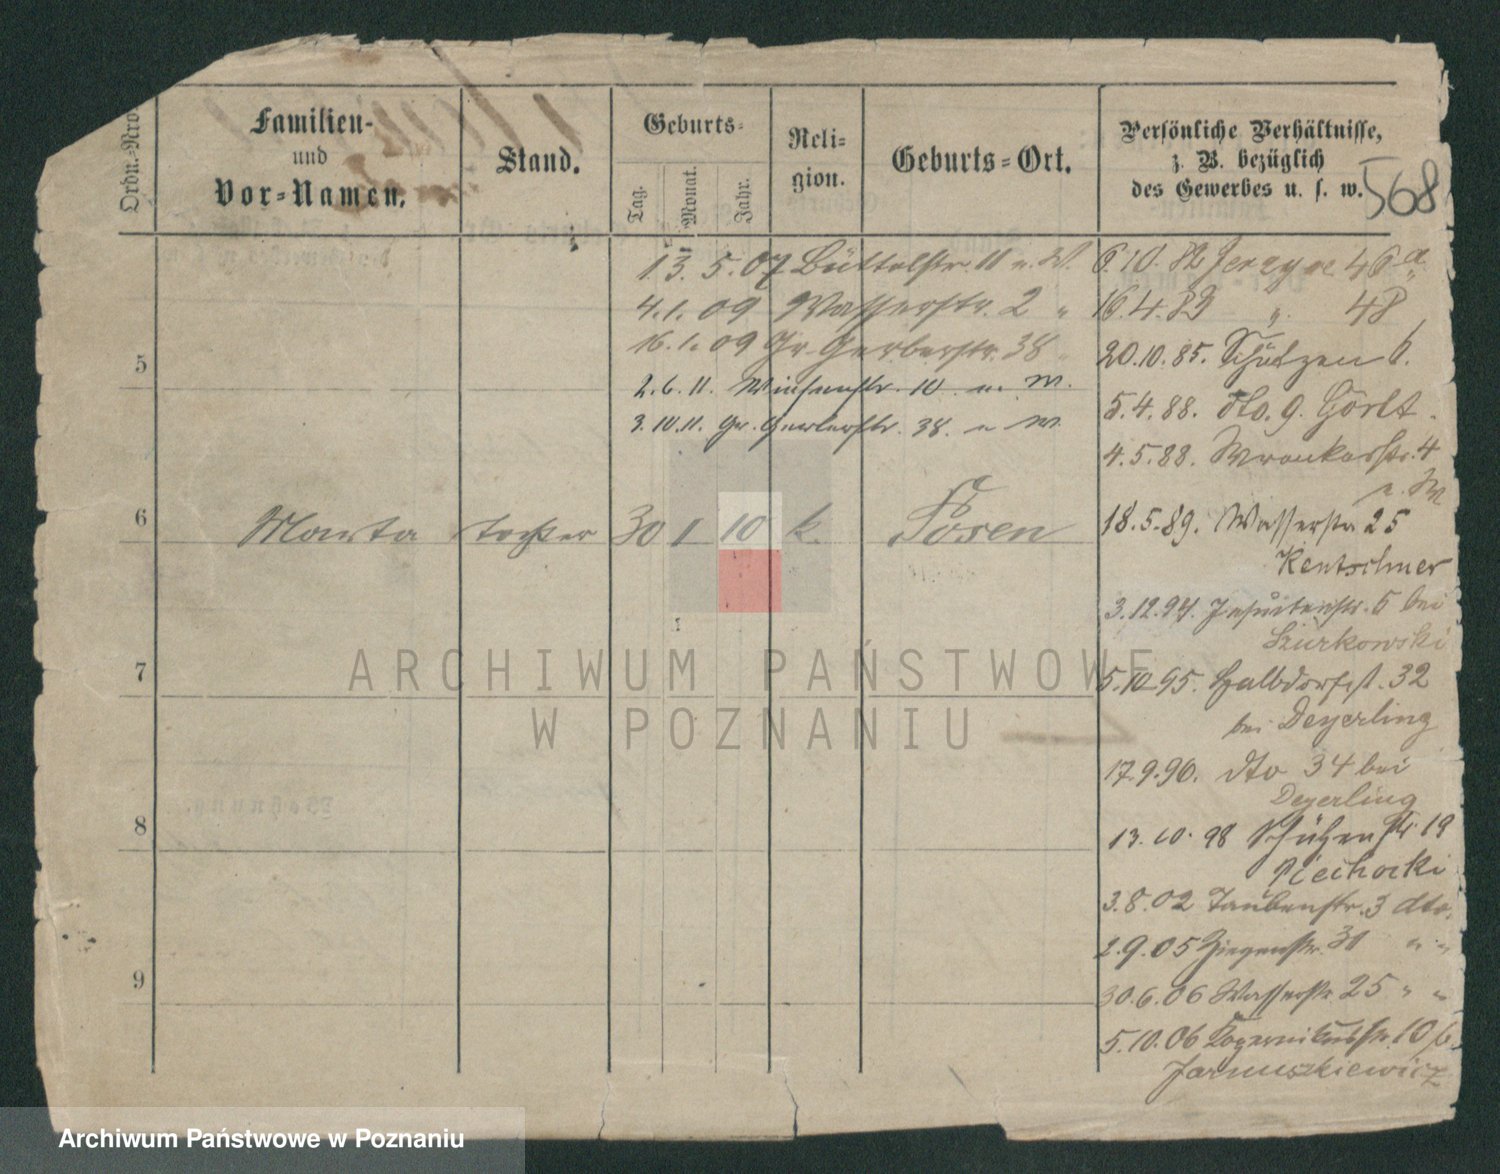 Ordn.-Nro
Familien-
und
Vor-Namen.
Stand.
Geburts-
Tag.
Monat.
Jahr.
Reli-
gion.
Geburts-Ort.
Persönliche Verhältnisse,
z. B. bezüglich
des Gewerbes u. s. w.
568
13. 5. 07 Büttelstr. 11 u. W.
4. 1. 09 Wasserstr. 2 "
16. 1. 09 Gr. Gerberstr. 38 "
2. 6. 11. Wiesenstr. 10 u. W.
3. 10. 11. Gr. Gerberstr. 38. u W.
5
6
Marta Tochter 30 1 10 k. Posen
7
8
9
6. 10. 82 Jerzyce 46a
16. 4. 83 " 48
20. 10. 85. Schützen 6.
5. 4. 88. dto. 9.
4. 5. 88. Wronkerstr. 4
u. W
18. 5. 89. Wasserstr 25
Kentschner
3. 12. 94. Jesuitenstr. 5 bei
Szurkowski
5. 10. 95. Halbdorfst. 32
bei Deyerling
17. 9. 96. dto 34 bei
Deyerling
13. 10. 98 Schützenstr. 19
Piechocki
3. 8. 02 Taubenstr. 3 dto.
2. 9. 05 Ziegenstr. 31 " "
30. 6. 06 Wasserstr 25 " "
5. 10. 06 Kopernikusstr. 10 b.
Jarnuszkiewicz
ARCHIWUM PAŃSTWOWE
W POZNANIU
Archiwum Państwowe w Poznaniu